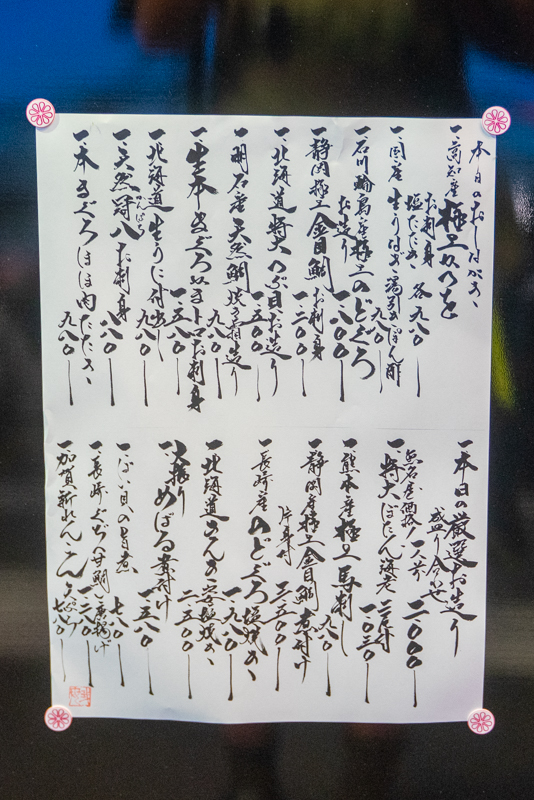 本日のおしながき
一、高知産 極上かつを
お刺身
塩たたき 各九八〇
一、国産 生うなぎ湯引きぽん酢
九八〇
一、石川輪島産極上のどぐろ
お造り 一、八〇〇
一、静岡極上金目鯛お刺身
一、二〇〇
一、北海道特大つぶ貝お造り
一、五〇〇
一、明石産天然鯛焼き霜造り
九八〇
一、生本まぐろ中トロお刺身
一、五八〇
一、北海道生うに付出し
九八〇
一、天然冠八お刺身
八八〇
一、本まぐろほほ肉たたき
九八〇
一、本日の厳選お造り
盛り合わせ
一人前 二、〇〇〇
一、特大ぼたん海老
一、〇三〇
一、熊本産極上馬刺し
九八〇
一、静岡産極上金目鯛煮付け
片身
三、五〇〇
一、長崎産のどぐろ塩焼き
一、九八〇
一、北海道きんき一本塩焼き
二、五〇〇
一、小振りめばる煮付け
一、五八〇
一、ばい貝の旨煮
七八〇
一、長崎ぐじ甘鯛
一、二八〇
一、加賀新れんこん
七八〇